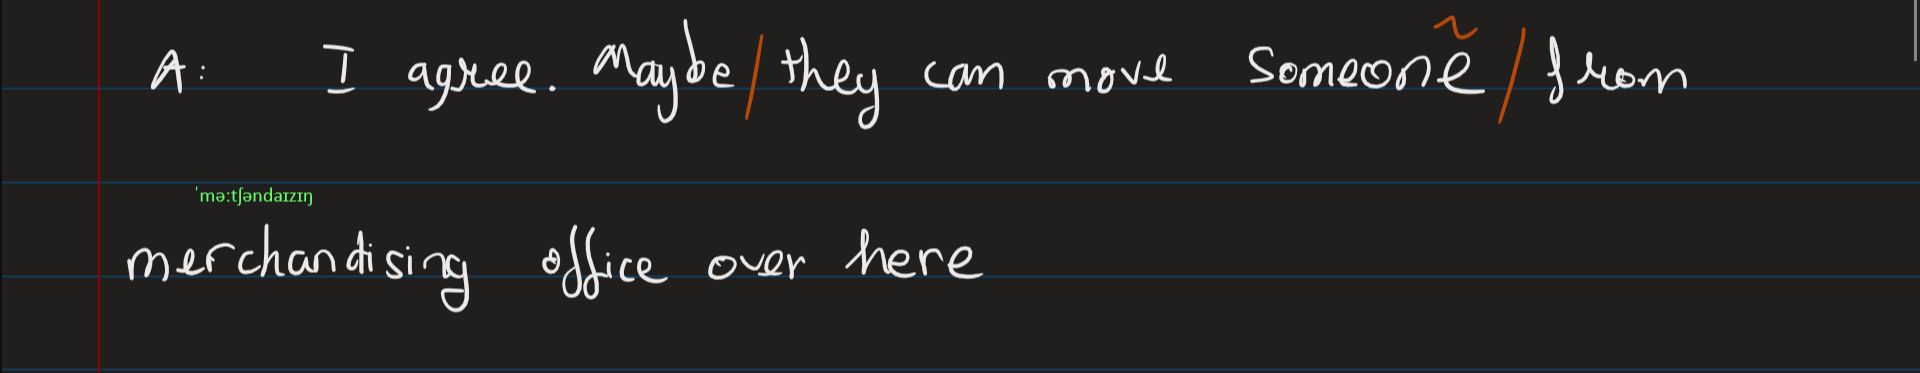 A: I agree. Maybe / they can move someone / from
ˈmə:tʃəndaɪzɪŋ
merchandising office over here